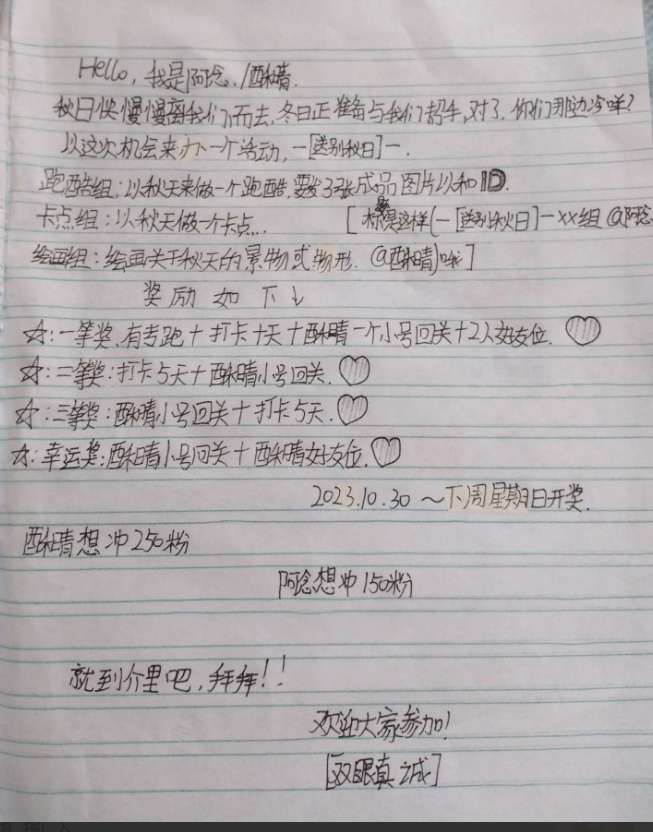 Hello, 我是阿唸./酥晴.
秋日快慢慢离我们而去,冬日正准备与我们招手,对了.你们那边冷咩?
以这次机会来办一个活动,一[送别秋日]一.
跑酷组:以秋天来做一个跑酷.要发3张成品图片以和ID.
卡点组:以秋天做一个卡点... [标题是这样(一[送别秋日]一xx组 @阿唸
绘画组:绘画关于秋天的景物或物形. @酥晴)哦]
奖励如下↓
☆:一等奖.有专跑+打卡十天+酥晴一个小号回关+2人好友位.♡
☆:二等奖:打卡5天+酥晴小号回关.♡
☆:三等奖:酥晴小号回关+打卡5天.♡
☆:幸运奖:酥晴小号回关+酥晴好友位.♡
2023.10.30 ~下周星期日开奖.
酥晴想冲250粉
阿唸想冲150粉
就到介里吧,拜拜!!
欢迎大家参加!
[双眼真诚]